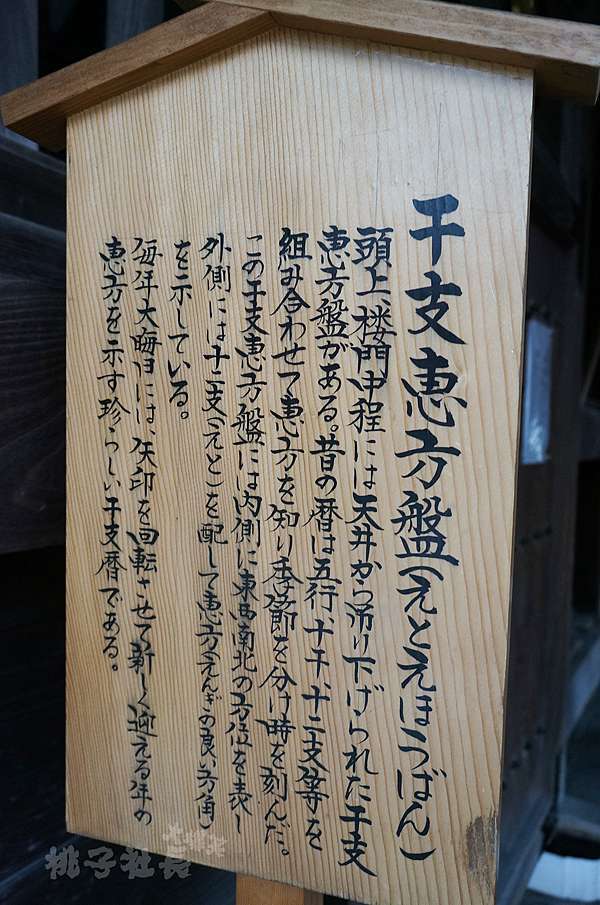 干支恵方盤(えとえほうばん)
頭上、楼門中程には天井から吊り下げられた干支
恵方盤がある。昔の暦は五行、十干、十二支等を
組み合わせて恵方を知り季節を分け時を刻んだ。
この干支恵方盤には内側に東西南北の方位を表し
外側には十二支(えと)を配して恵方(えんぎの良い方角)
を示している。
毎年大晦日には、矢印を回転させて新しく迎える年の
恵方を示す珍らしい干支暦である。
桃子社長